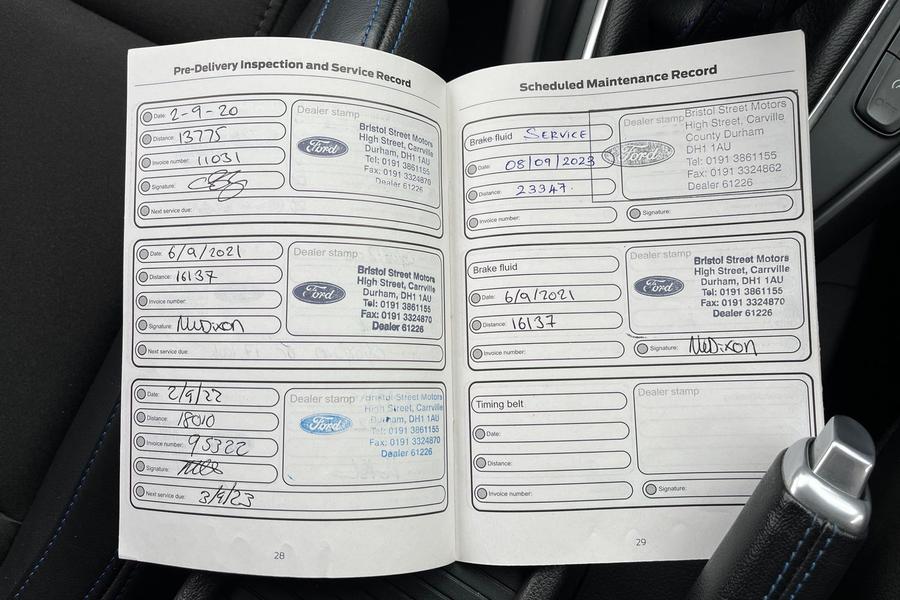 Pre-Delivery Inspection and Service Record
Date: 2-9-20
Distance: 13775
Invoice number: 11031
Signature:
Next service due:
Dealer stamp
Ford
Bristol Street Motors
High Street, Carrville
Durham, DH1 1AU
Tel: 0191 3861155
Fax: 0191 3324870
Dealer 61226
Date: 6/9/2021
Distance: 16137
Invoice number:
Signature: McDixon
Next service due:
Dealer stamp
Ford
Bristol Street Motors
High Street, Carrville
Durham, DH1 1AU
Tel: 0191 3861155
Fax: 0191 3324870
Dealer 61226
Date: 2/9/22
Distance: 18010
Invoice number: 95322
Signature:
Next service due: 3/9/23
Dealer stamp
Ford
Bristol Street Motors
High Street, Carrville
Durham, DH1 1AU
Tel: 0191 3861155
Fax: 0191 3324870
Dealer 61226
28
Scheduled Maintenance Record
Brake fluid SERVICE
Date: 08/09/2023
Distance: 23347.
Invoice number:
Signature:
Dealer stamp
Ford
Bristol Street Motors
High Street, Carville
County Durham
DH1 1AU
Tel: 0191 3861155
Fax: 0191 3324862
Dealer 61226
Brake fluid
Date: 6/9/2021
Distance: 16137
Invoice number:
Signature: McDixon
Dealer stamp
Ford
Bristol Street Motors
High Street, Carrville
Durham, DH1 1AU
Tel: 0191 3861155
Fax: 0191 3324870
Dealer 61226
Timing belt
Date:
Distance:
Invoice number:
Signature:
Dealer stamp
29